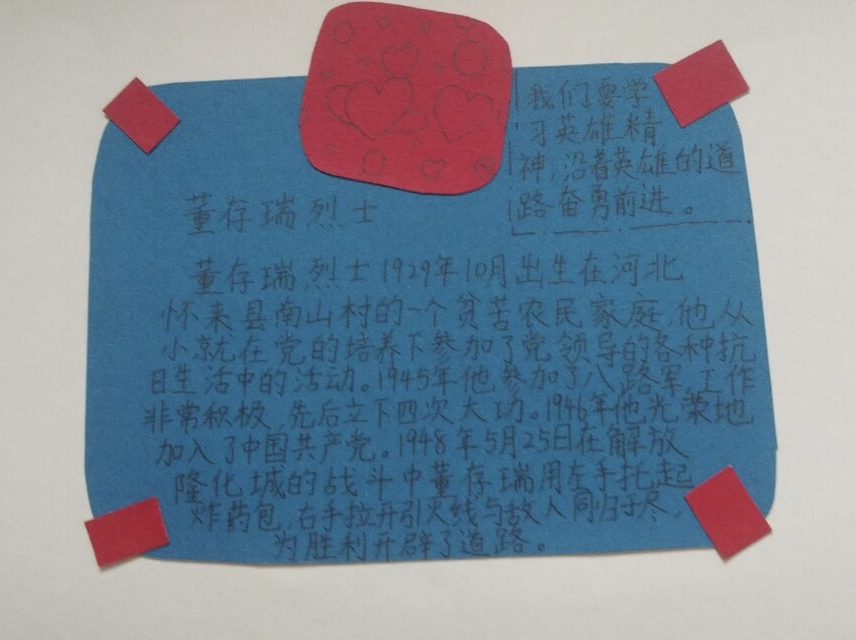 我们要学
习英雄精
神,沿着英雄的道
路奋勇前进。
董存瑞烈士
董存瑞烈士1929年10月出生在河北
怀来县南山村的一个贫苦农民家庭,他从
小就在党的培养下参加了党领导的各种抗
日生活中的活动。1945年他参加了八路军,工作
非常积极,先后立下四次大功。1946年他光荣地
加入了中国共产党。1948年5月25日在解放
隆化城的战斗中董存瑞用左手托起
炸药包,右手拉开引火线与敌人同归于尽,
为胜利开辟了道路。